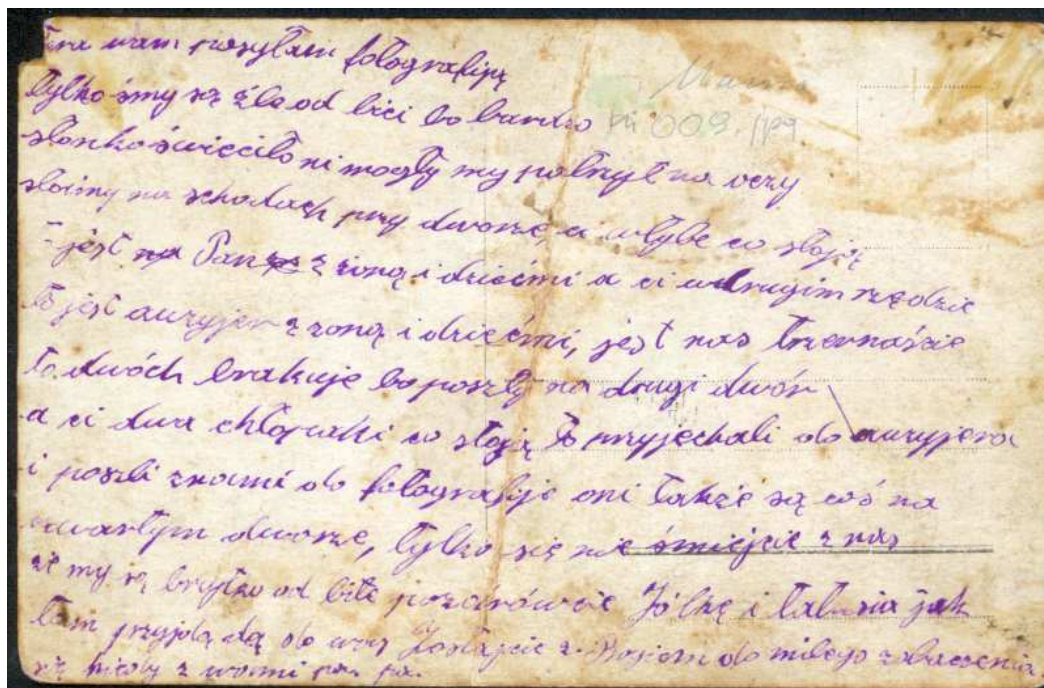 wam posyłam fotografiją
Mama
tylko śmy są źle od bici bo bardzo
009
słonko świeciło ni mogły my patrzyć na oczy
stoimy na schodach przy dworze, a w tybe co stoją
jest Pan z zoną i dziećmi a ci w drugim rzędzie
to jest auzyjer z zoną i dziećmi, jest nas trzernaście
to dwóch brakuje bo poszły na drugi dwór
a ci dwa chłopaki co stoją to przyjechali do auzyjera
i poszli znami do fotografije oni także są coś na
czwartym dworze, tylko się nie śmiejcie z nas
ze my są brzytko od bite pozdrówcie Jólkę i tatusia jak
tam przyjdą do was Zostajcie z Bogiem do miłego zobaczenia
się z wami pa pa